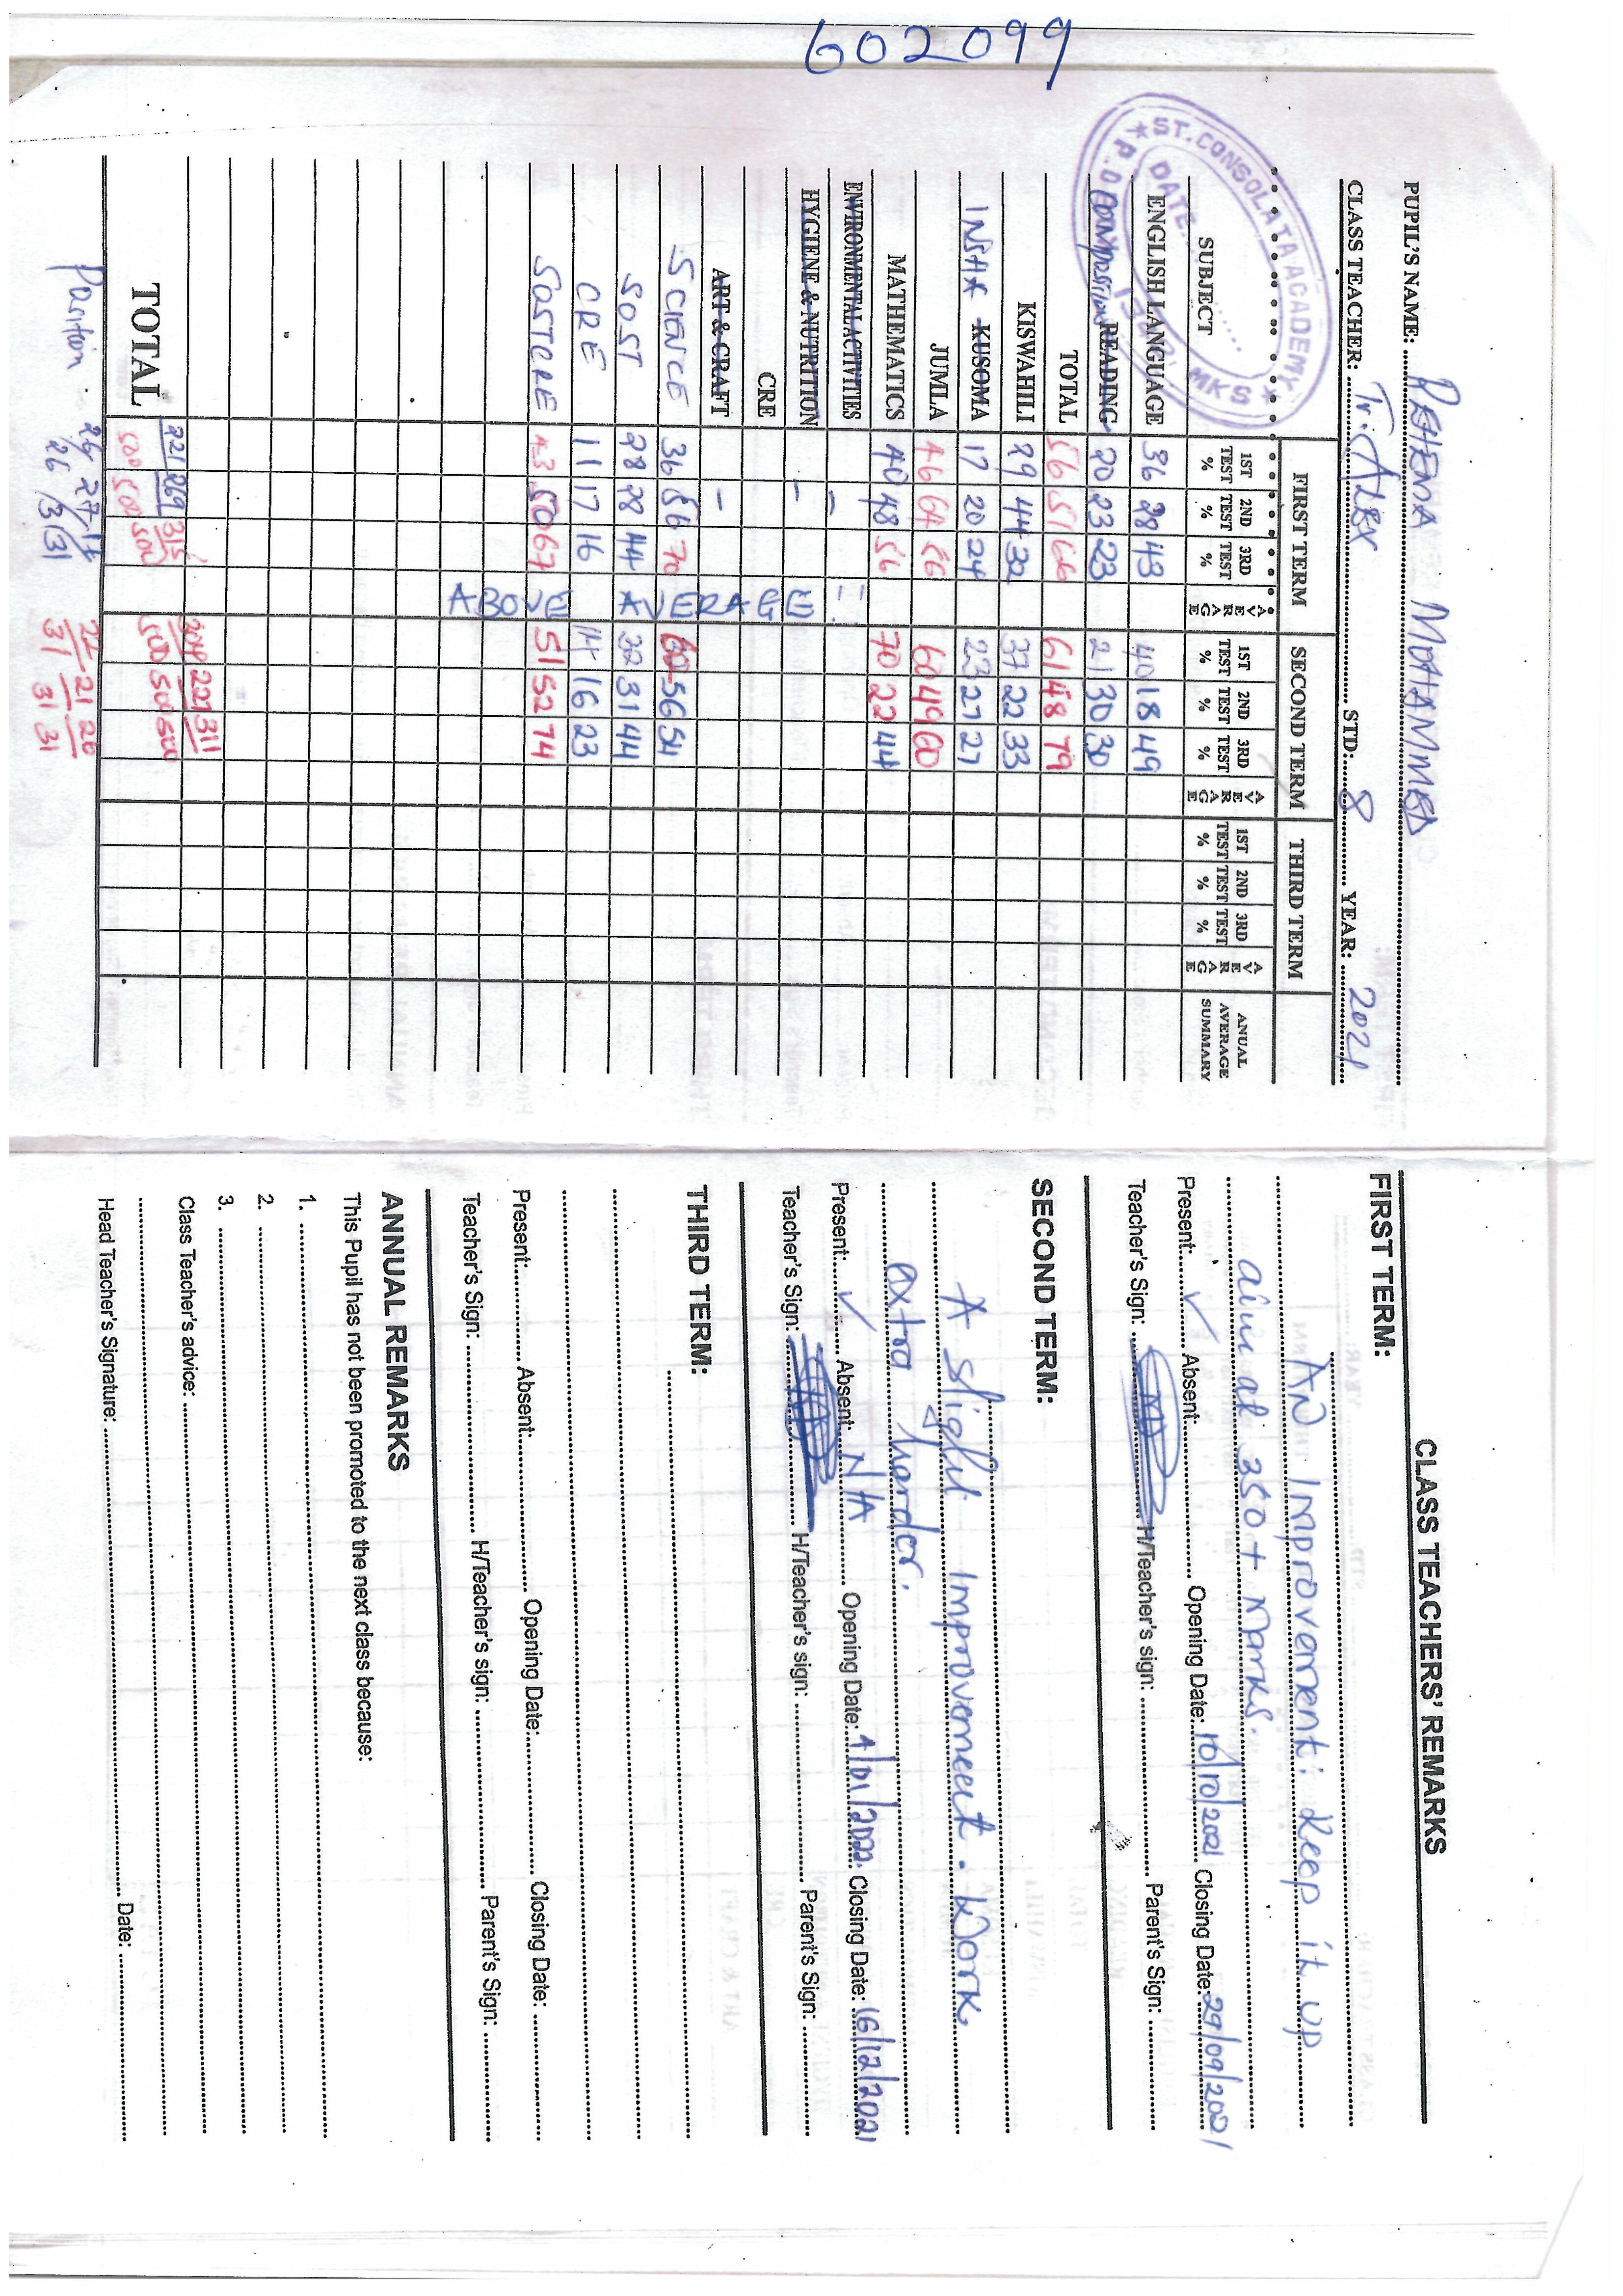 602099
PUPIL'S NAME: REHEMA MOHAMMED
CLASS TEACHER: Tr. ALEX STD: 8 YEAR: 2021
ST. CONSOLATA ACADEMY
DATE
P.O
MKS
FIRST TERM SECOND TERM THIRD TERM
SUBJECT 1ST TEST % 2ND TEST % 3RD TEST % AVERAGE 1ST TEST % 2ND TEST % 3RD TEST % AVERAGE 1ST TEST % 2ND TEST % 3RD TEST % AVERAGE ANUAL AVERAGE SUMMARY
ENGLISH LANGUAGE 36 28 43 40 18 49
Composition READING 20 23 23 21 30 30
TOTAL 56 51 66 61 48 79
KISWAHILI 29 44 32 37 22 33
INSHA KUSOMA 17 20 24 23 27 27
JUMLA 46 64 56 60 49 60
MATHEMATICS 40 48 56 70 22 44
ENVIRONMENTAL ACTIVITIES –
HYGIENE & NUTRITION –
CRE
ART & CRAFT –
SCIENCE 36 56 70 60 56 54
SOST 28 28 44 37 31 44
CRE 11 17 16 14 16 23
SOST CRE 43 50 67 51 52 74
ABOVE AVERAGE !!
TOTAL 269 315 227 311
500 500 500 500 500 500
Position 26/26 27/31 21/31 20/31
CLASS TEACHERS' REMARKS
FIRST TERM:
AN Improvement: Keep it up
aim at 350+ marks.
Present: ✓ Absent: Opening Date: 10/10/2021 Closing Date: 29/09/2021
Teacher's Sign: H/Teacher's sign: Parent's Sign:
SECOND TERM:
A slight Improvement. Work
extra harder.
Present: ✓ Absent: N/A Opening Date: 4/01/2022 Closing Date: 16/12/2021
Teacher's Sign: H/Teacher's sign: Parent's Sign:
THIRD TERM:
Present: Absent: Opening Date: Closing Date:
Teacher's Sign: H/Teacher's sign: Parent's Sign:
ANNUAL REMARKS
This Pupil has not been promoted to the next class because:
1.
2.
3.
Class Teacher's advice:
Head Teacher's Signature: Date: